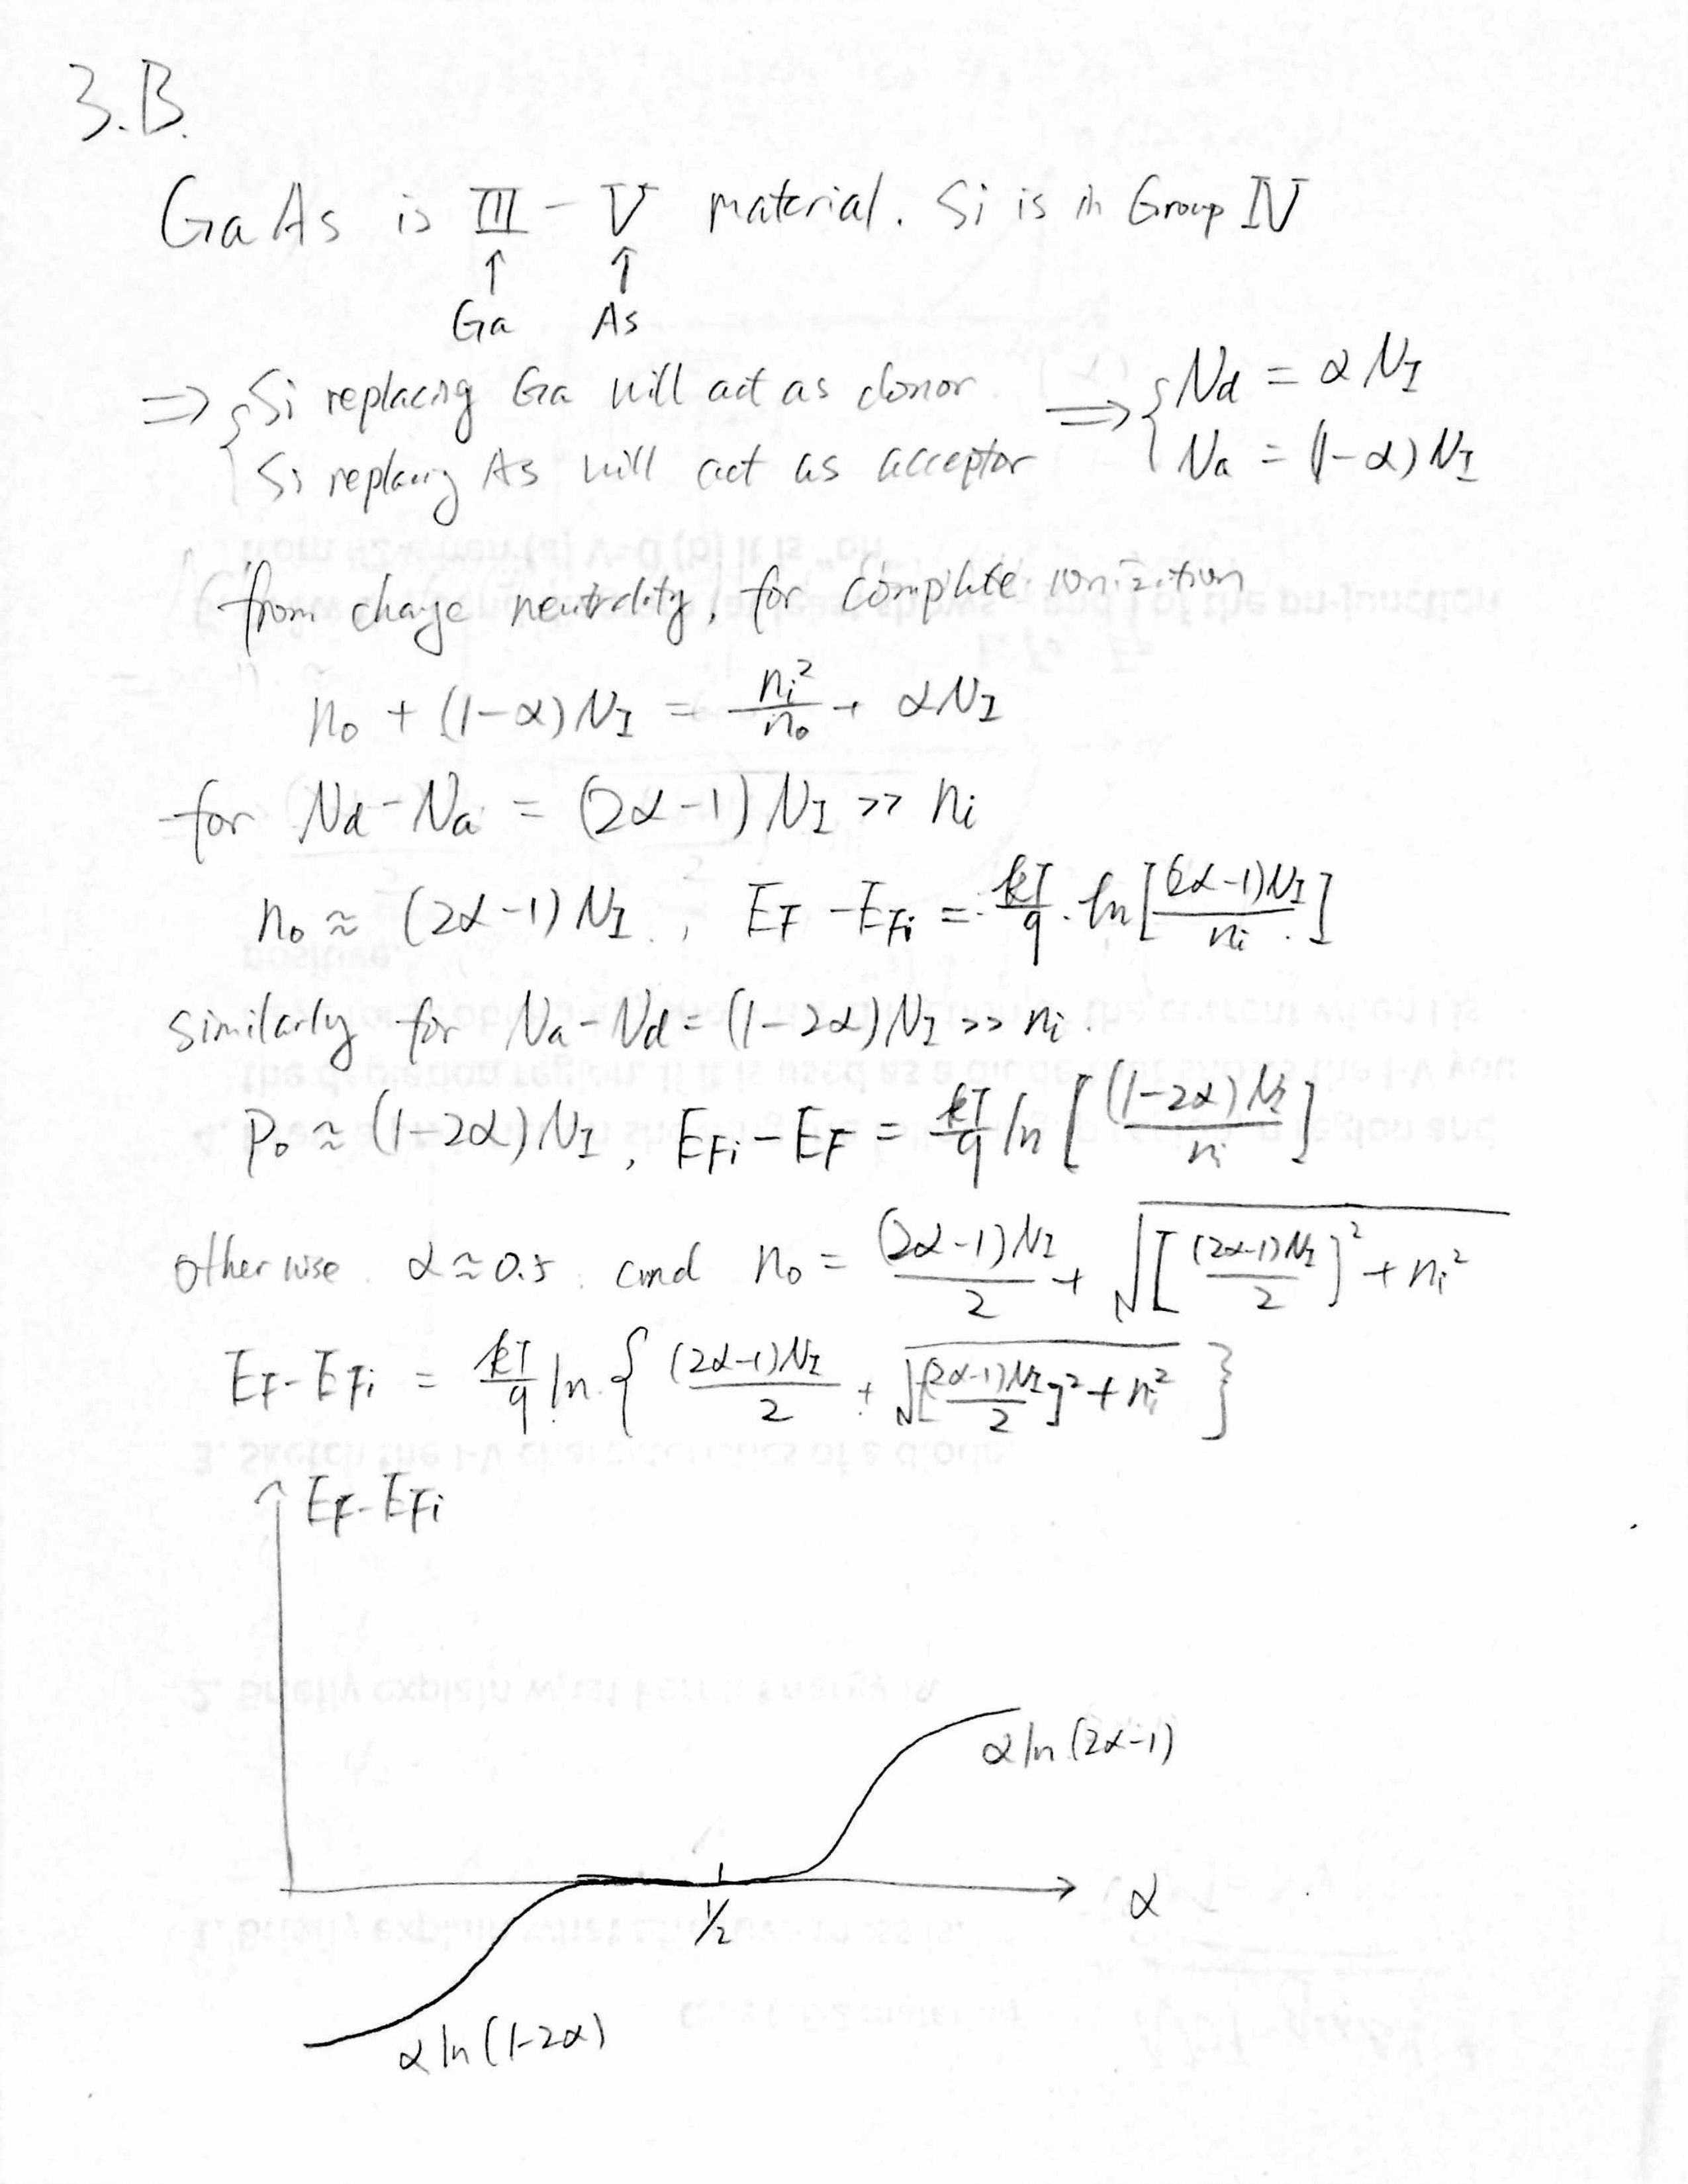 3.B.
GaAs is III - V material. Si is in Group IV
↑ ↑
Ga As
⇒ { Si replacing Ga will act as donor ⇒ { Nd = α N_I
Si replacing As will act as acceptor Na = (1-α) N_I
from charge neutrality, for complete ionization
n₀ + (1-α) N_I = nᵢ²/n₀ + αN_I
for Nd - Na = (2α-1) N_I >> nᵢ
n₀ ≈ (2α-1) N_I , E_F - E_Fi = kT/q · ln[(2α-1)N_I / nᵢ]
similarly for Na - Nd = (1-2α) N_I >> nᵢ.
P₀ ≈ (1-2α) N_I , E_Fi - E_F = kT/q ln [(1-2α) N_I / nᵢ]
otherwise α ≈ 0.5 and n₀ = (2α-1)N_I / 2 + √([(2α-1)N_I / 2]² + nᵢ²)
E_F - E_Fi = kT/q ln { (2α-1)N_I / 2 + √([(2α-1)N_I / 2]² + nᵢ²) }
E_F - E_Fi
α ln (2α-1)
1/2
α
α ln (1-2α)